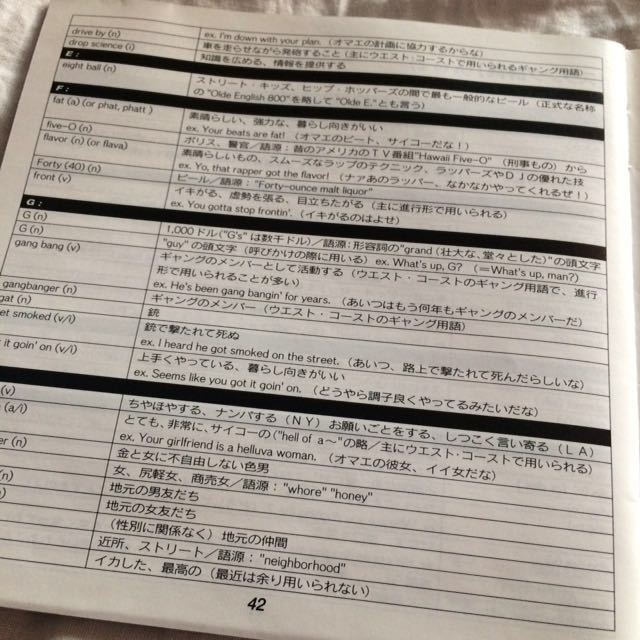 ex. I'm down with your plan. (オマエの計画に協力するからな)
drive by (n) 車を走らせながら発砲すること (主にウエスト・コーストで用いられるギャング用語)
drop science (i) 知識を広める、情報を提供する
E:
eight ball (n) ストリート・キッズ、ヒップ・ホッパーズの間で最も一般的なビール (正式な名称
の "Olde English 800"を略して "Olde E."とも言う)
F:
fat (a) (or phat, phatt ) 素晴らしい、強力な、暮らし向きがいい
ex. Your beats are fat! (オマエのビート、サイコーだな!)
five-O (n) ポリス、警官/語源:昔のアメリカのTV番組"Hawaii Five-O" (刑事もの) から
flavor (n) (or flava) 素晴らしいもの、スムーズなラップのテクニック、ラッパーズやDJの優れた技
ex. Yo, that rapper got the flavor! (ナァあのラッパー、なかなかやってくれるぜ!)
Forty (40) (n) ビール/語源:"Forty-ounce malt liquor"
front (v) イキがる、虚勢を張る、目立ちたがる (主に進行形で用いられる)
ex. You gotta stop frontin'. (イキがるのはよせ)
G:
G (n) 1,000ドル("G's" は数千ドル)/語源:形容詞の"grand (壮大な、堂々とした)"の頭文字
G (n) "guy" の頭文字 (呼びかけの際に用いる) ex. What's up, G? (=What's up, man?)
gang bang (v) ギャングのメンバーとして活動する (ウエスト・コーストのギャング用語で、進行
形で用いられることが多い)
ex. He's been gang bangin' for years. (あいつはもう何年もギャングのメンバーだ)
gangbanger (n) ギャングのメンバー (ウエスト・コーストのギャング用語)
gat (n) 銃
et smoked (v/i) 銃で撃たれて死ぬ
ex. I heard he got smoked on the street. (あいつ、路上で撃たれて死んだらしいな)
it goin' on (v/i) 上手くやっている、暮らし向きがいい
ex. Seems like you got it goin' on. (どうやら調子良くやってるみたいだな)
(v) ちやほやする、ナンパする (NY) お願いごとをする、しつこく言い寄る (LA)
(a/i) とても、非常に、サイコーの ("hell of a〜"の略/主にウエスト・コーストで用いられる)
ex. Your girlfriend is a helluva woman. (オマエの彼女、イイ女だな)
er (n) 金と女に不自由しない色男
(n) 女、尻軽女、商売女/語源:"whore" "honey"
地元の男友だち
地元の女友だち
(性別に関係なく) 地元の仲間
近所、ストリート/語源:"neighborhood"
イカした、最高の (最近は余り用いられない)
42